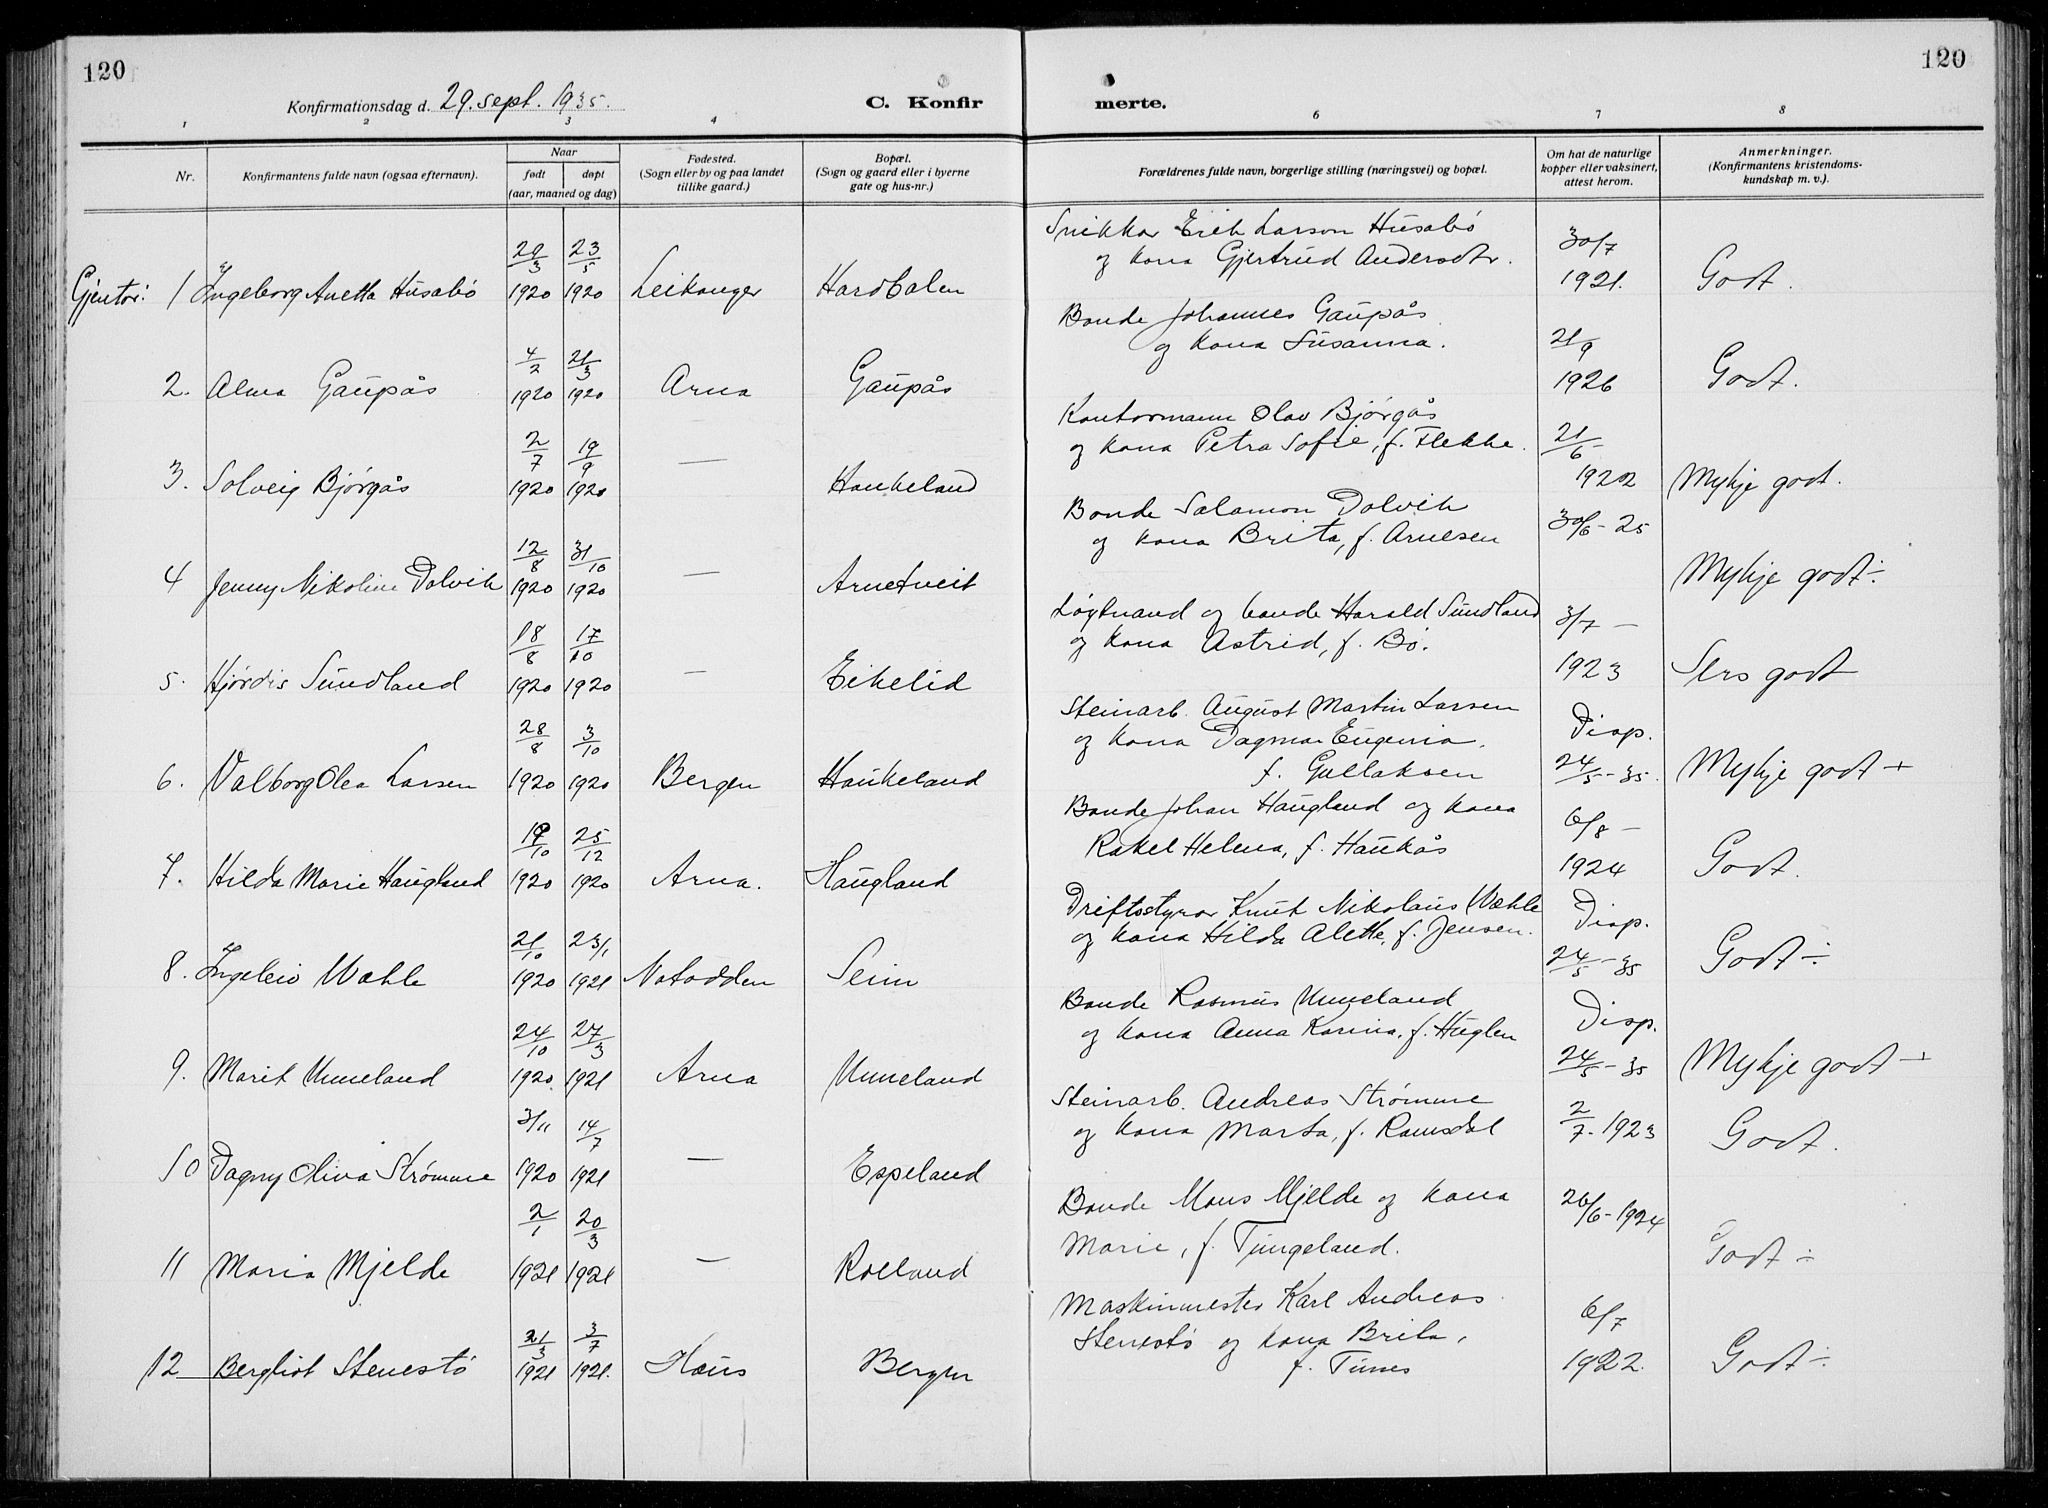 120
120
Konfirmationsdag d. 29. sept. 1935.
C. Konfir
merte.
1 2 3 4 6 7 8
Nr.
Konfirmantens fulde navn (ogsaa efternavn).
Naar
født
døpt
(aar, maaned og dag)
Fødested.
(Sogn eller by og paa landet
tillike gaard.)
Bopæl.
(Sogn og gaard eller i byerne
gate og hus-nr.)
Forældrenes fulde navn, borgerlige stilling (næringsvei) og bopæl.
Om hat de naturlige
kopper eller vaksinert,
attest herom.
Anmerkninger.
(Konfirmantens kristendoms-
kundskap m. v.).
Gjentor: 1 Ingeborg Anetta Husabø 29/3 1920 23/5 1920 Leikanger
Snikkar Erik Larson Husabø
og kona Gjertrud Andersdtr.
30/7 1921. Godt.
2. Alma Gaupås 4/2 1920 21/3 1920 Arna Gaupås
Bonde Johannes Gaupås
og kona Susanna.
21/9 1926 Godt.
3. Solveig Bjørgås 2/7 1920 19/9 1920 — Haukeland
Kontormann Olav Bjørgås
og kona Petra Sofie, f. Flekke.
21/6- 1922 Mykje godt.
4 Jenny Nikoline Dalvik 12/8 1920 31/10 1920 — Arnetveit
Bonde Salamon Dalvik
og kona Brita, f. Arnesen
30/6-25 Mykje godt÷
5. Hjørdis Sundland 18/8 1920 17/10 1920 — Eikelid
Løytnand og bonde Harald Sundland
og kona Astrid, f. Bø.
3/7 – 1923 Sers godt
6. Valborg Olea Larsen 28/8 1920 3/10 1920 Bergen Haukeland
Steinarb. August Martin Larsen
og kona Dagmar Eugenia,
f. Gullaksen
Disp. 24/5-35. Mykje godt +
7. Hilda Marie Haugland 19/10 1920 25/12 1920 Arna. Haugland
Bonde Johan Haugland og kona
Rakel Helena, f. Haukås
6/8 – 1924 Godt.
8. Ingeleiv Wæhle 21/10 1920 23/1 1921 Notodden Seim
Driftsstyrar Knut Nikolaus Wæhle
og kona Hilda Alette, f. Jensen.
Disp. 24/5-35 Godt÷
9. Marit Unneland 24/10 1920. 27/3 1921 Arna Unneland
Bonde Rasmus Unneland
og kona Anna Karina, f. Huglen
Disp. 24/5-35 Mykje godt ÷
10 Dagny Oliva Strømme 3/11 1920 14/7 1921 — Espeland
Steinarb. Andreas Strømme
og kona Marta, f. Ramsdal
2/7-1923 Godt.
11 Maria Mjelde 2/1 1921 20/3 1921 — Rolland
Bonde Mons Mjelde og kona
Marie, f. Tungeland.
26/6-1924 Godt ÷
12 Bergliot Stenestø 21/3 1921 3/7 1921. Haus Bergen
Maskinmester Karl Andreas
Stenestø og kona Brita,
f. Tunes
6/7 1922. Godt÷